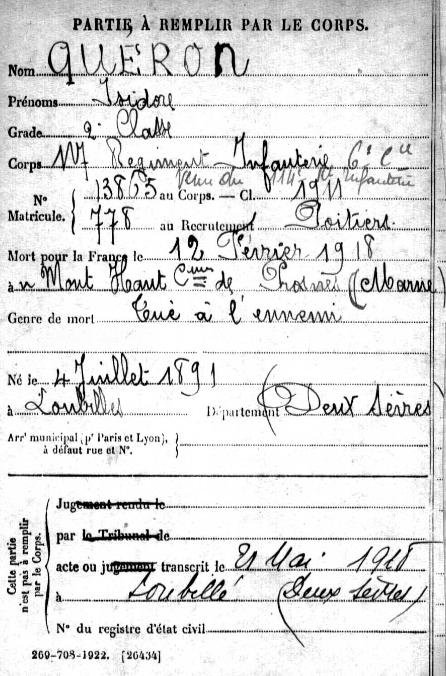 PARTIE À REMPLIR PAR LE CORPS.
Nom QUÉRON
Prénoms Isidore
Grade 2e Classe
Corps 117 Régiment Infanterie 6e Cie
Venu du 114e Rt Infanterie
N° Matricule. { 13865 au Corps. — Cl. 1911
778 au Recrutement Poitiers
Mort pour la France le 12 Février 1918
à Mont Haut Cmne de Prosnes (Marne)
Genre de mort Tué à l'ennemi
Né le 4 Juillet 1891
à Loubillé Département Deux Sèvres
Arrt municipal (pr Paris et Lyon), à défaut rue et N°.
Cette partie n'est pas à remplir par le Corps.
Jugement rendu le
par le Tribunal de
acte ou jugement transcrit le 21 Mai 1918
à Loubillé (Deux Sèvres)
N° du registre d'état civil
269-708-1922. [26434]